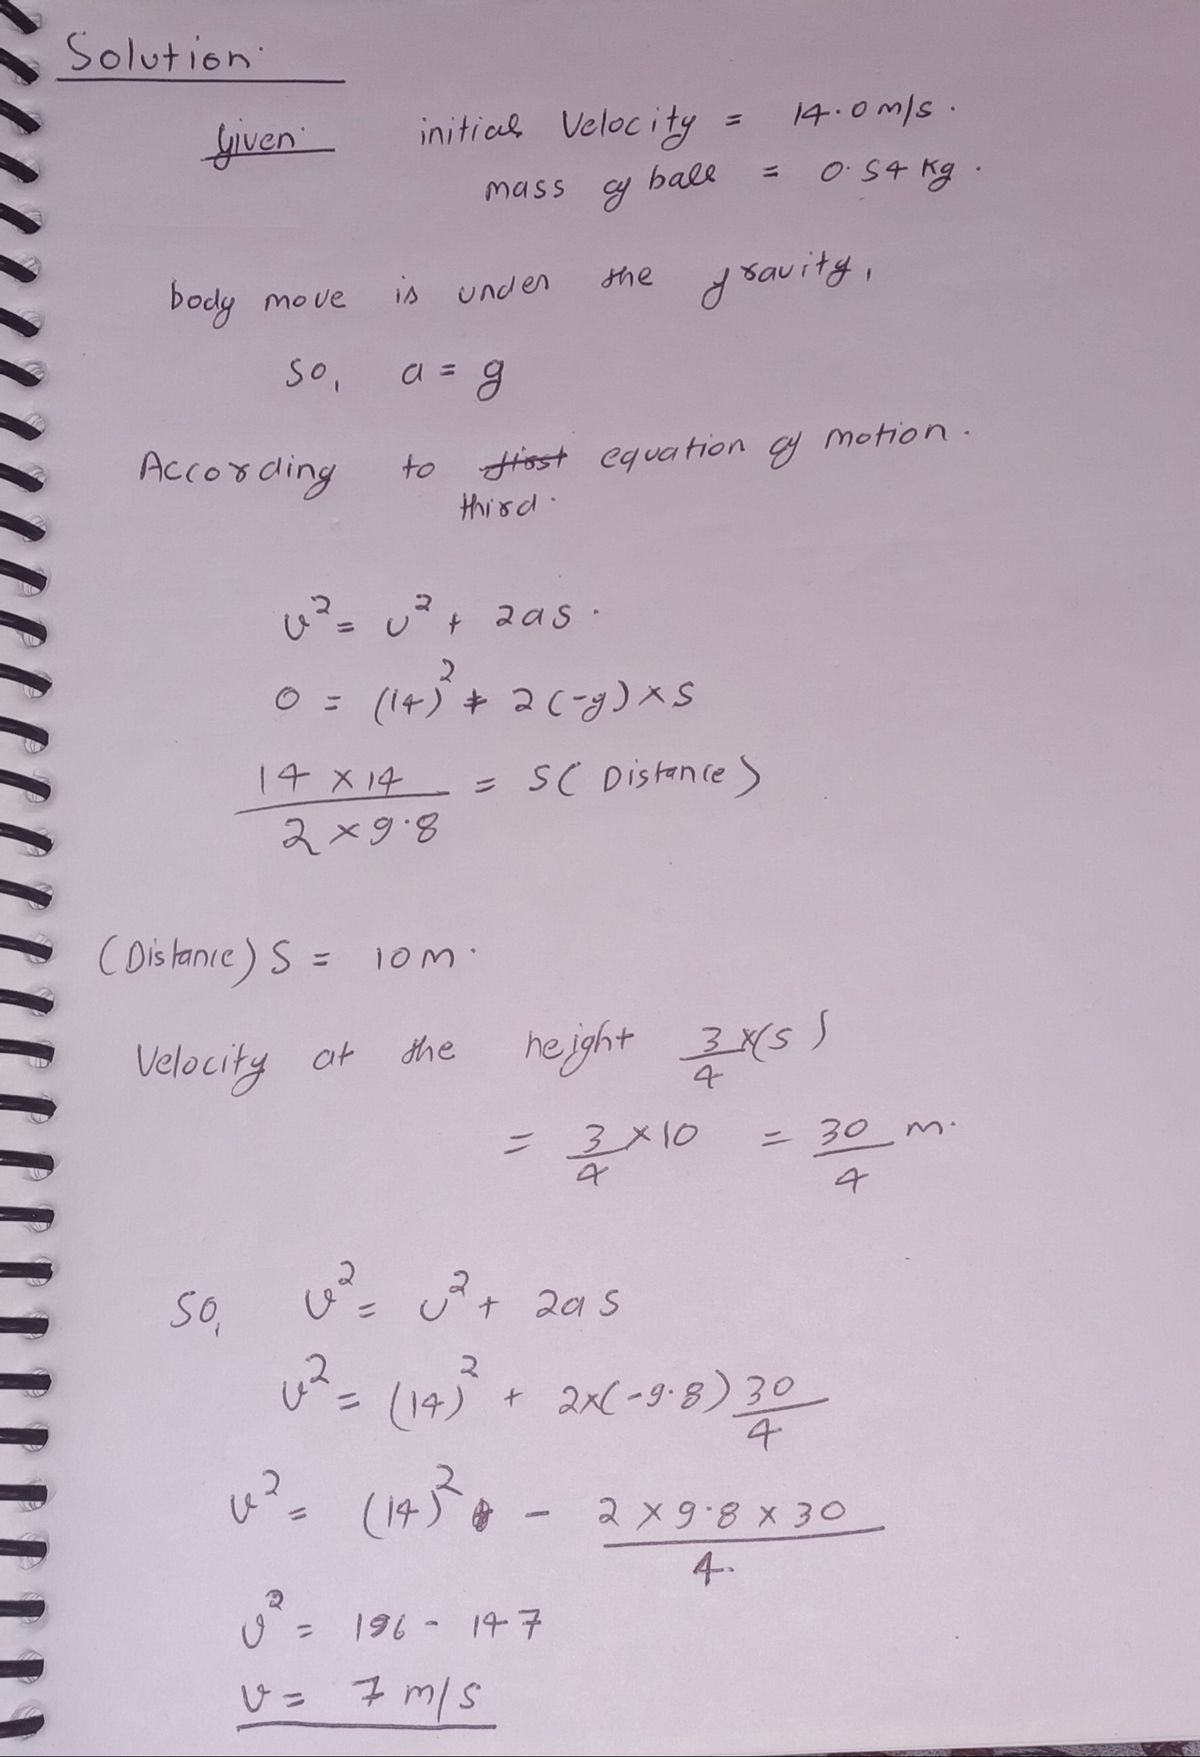 Solution.
Given: initial Velocity = 14.0 m/s.
mass of ball = 0.54 kg.
body move is under the gravity,
So, a = g
According to ~~first~~ equation of motion.
third.
v² = u² + 2as.
0 = (14)² + 2(-g) × S
14 × 14 / 2 × 9.8 = S (Distance)
(Distance) S = 10m.
Velocity at the height 3/4 × (S)
= 3/4 × 10 = 30/4 m.
So, v² = u² + 2as
v² = (14)² + 2×(-9.8) 30/4
v² = (14)² - 2 × 9.8 × 30 / 4.
v² = 196 - 147
v = 7 m/s